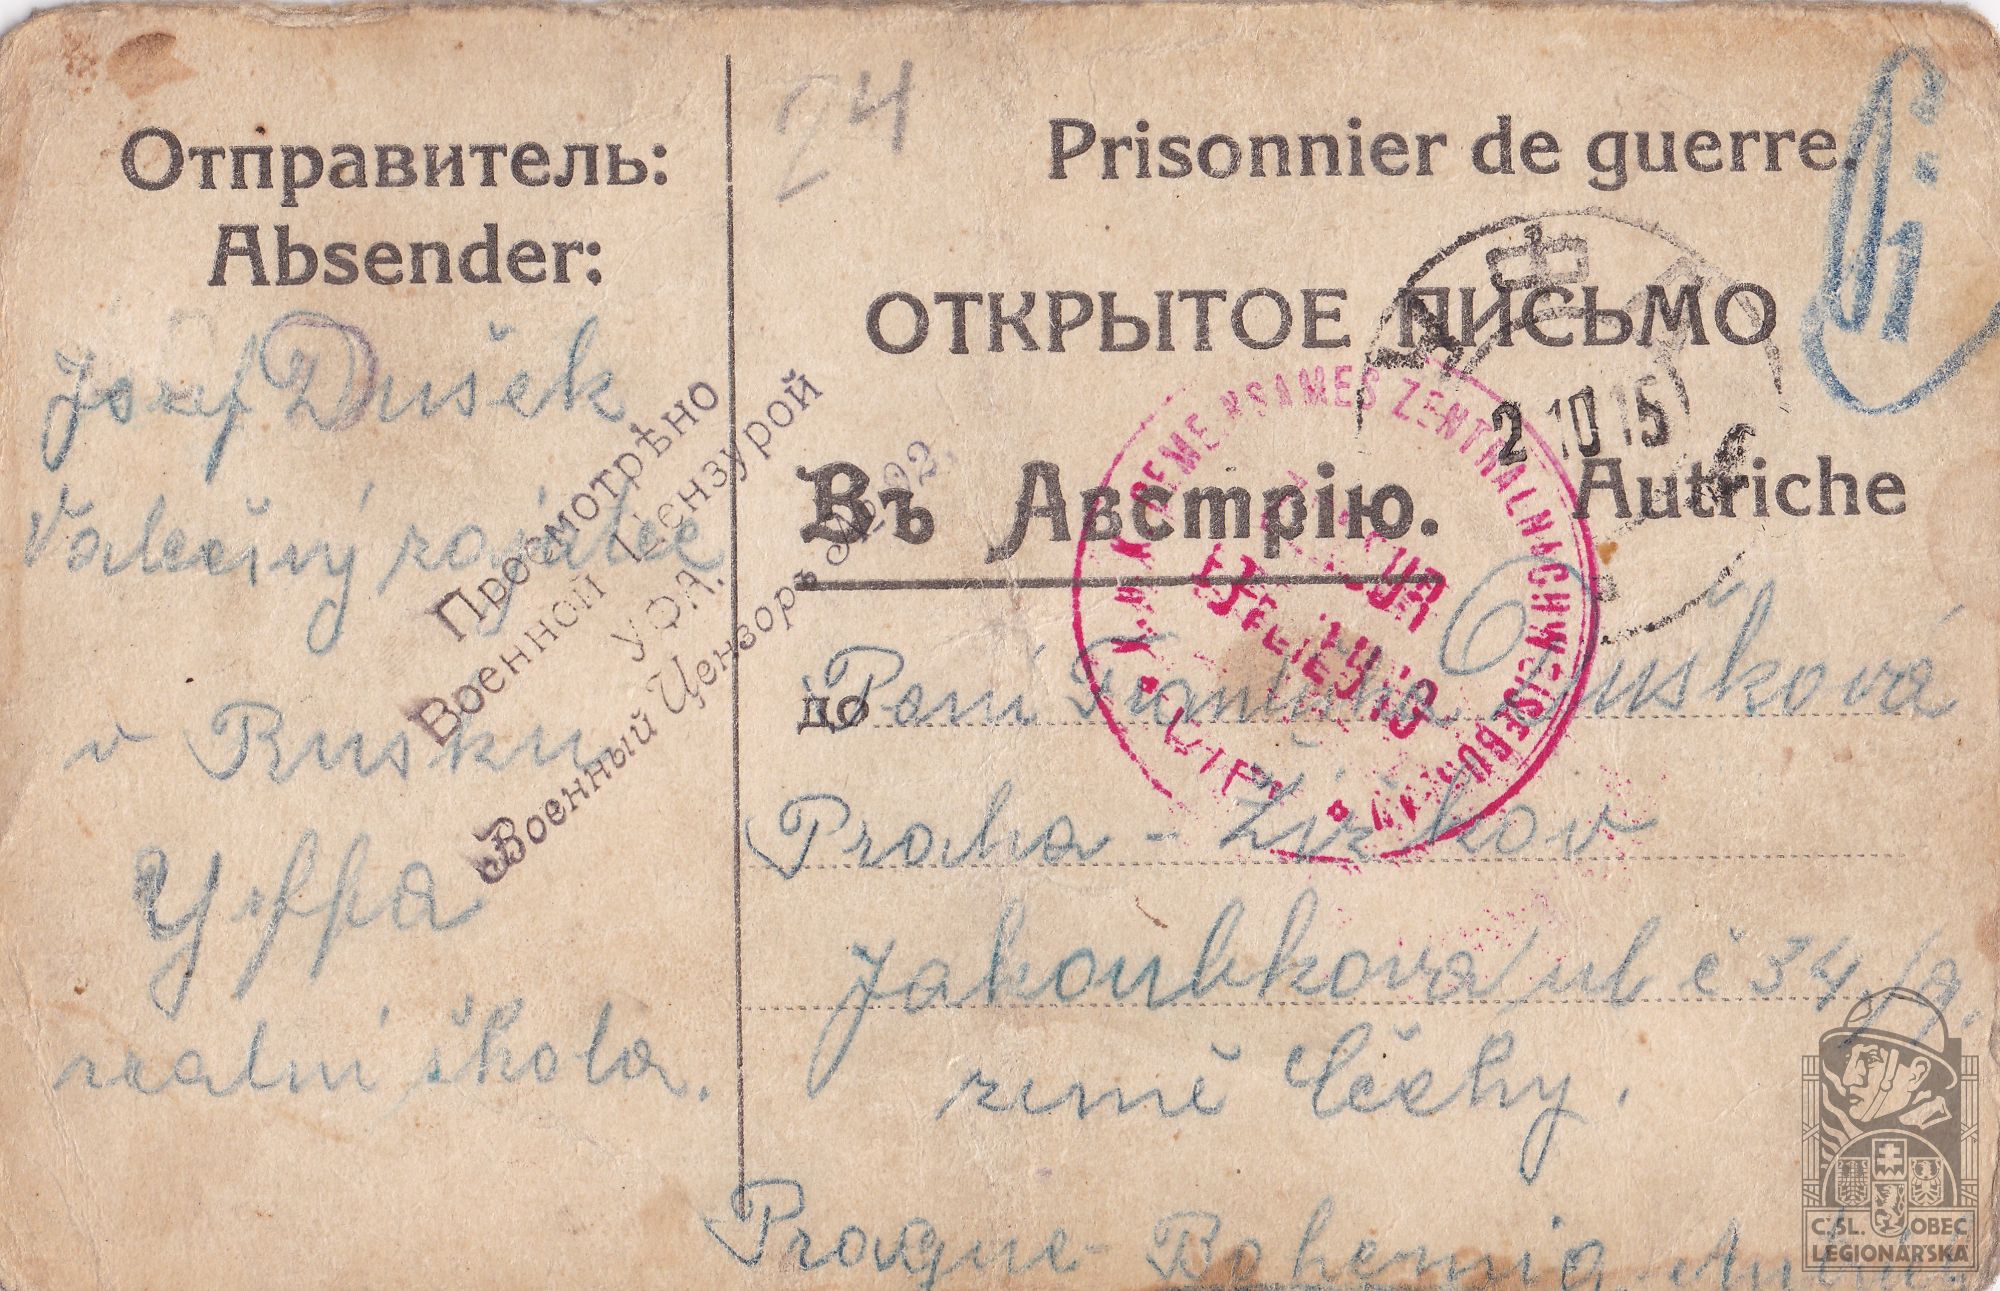 Отправитель:
Absender:
Josef Dušek
Válečný zajatec
v Rusku
Уффа
realní škola.
Просмотрѣно
Военной Цензурой
УФА.
Военный Цензоръ № 92.
24
Prisonnier de guerre.
ОТКРЫТОЕ ПИСЬМО
2 10 15
Въ Австрію. Autriche
ZENTRALNACHWEISEBUR
WIEN
до Paní Dušková
Praha - Žižkov
Jakoubkova ul č 34/
země Čechy.
Prague - Bohemia
ČSL. OBEC
LEGIONÁŘSKÁ